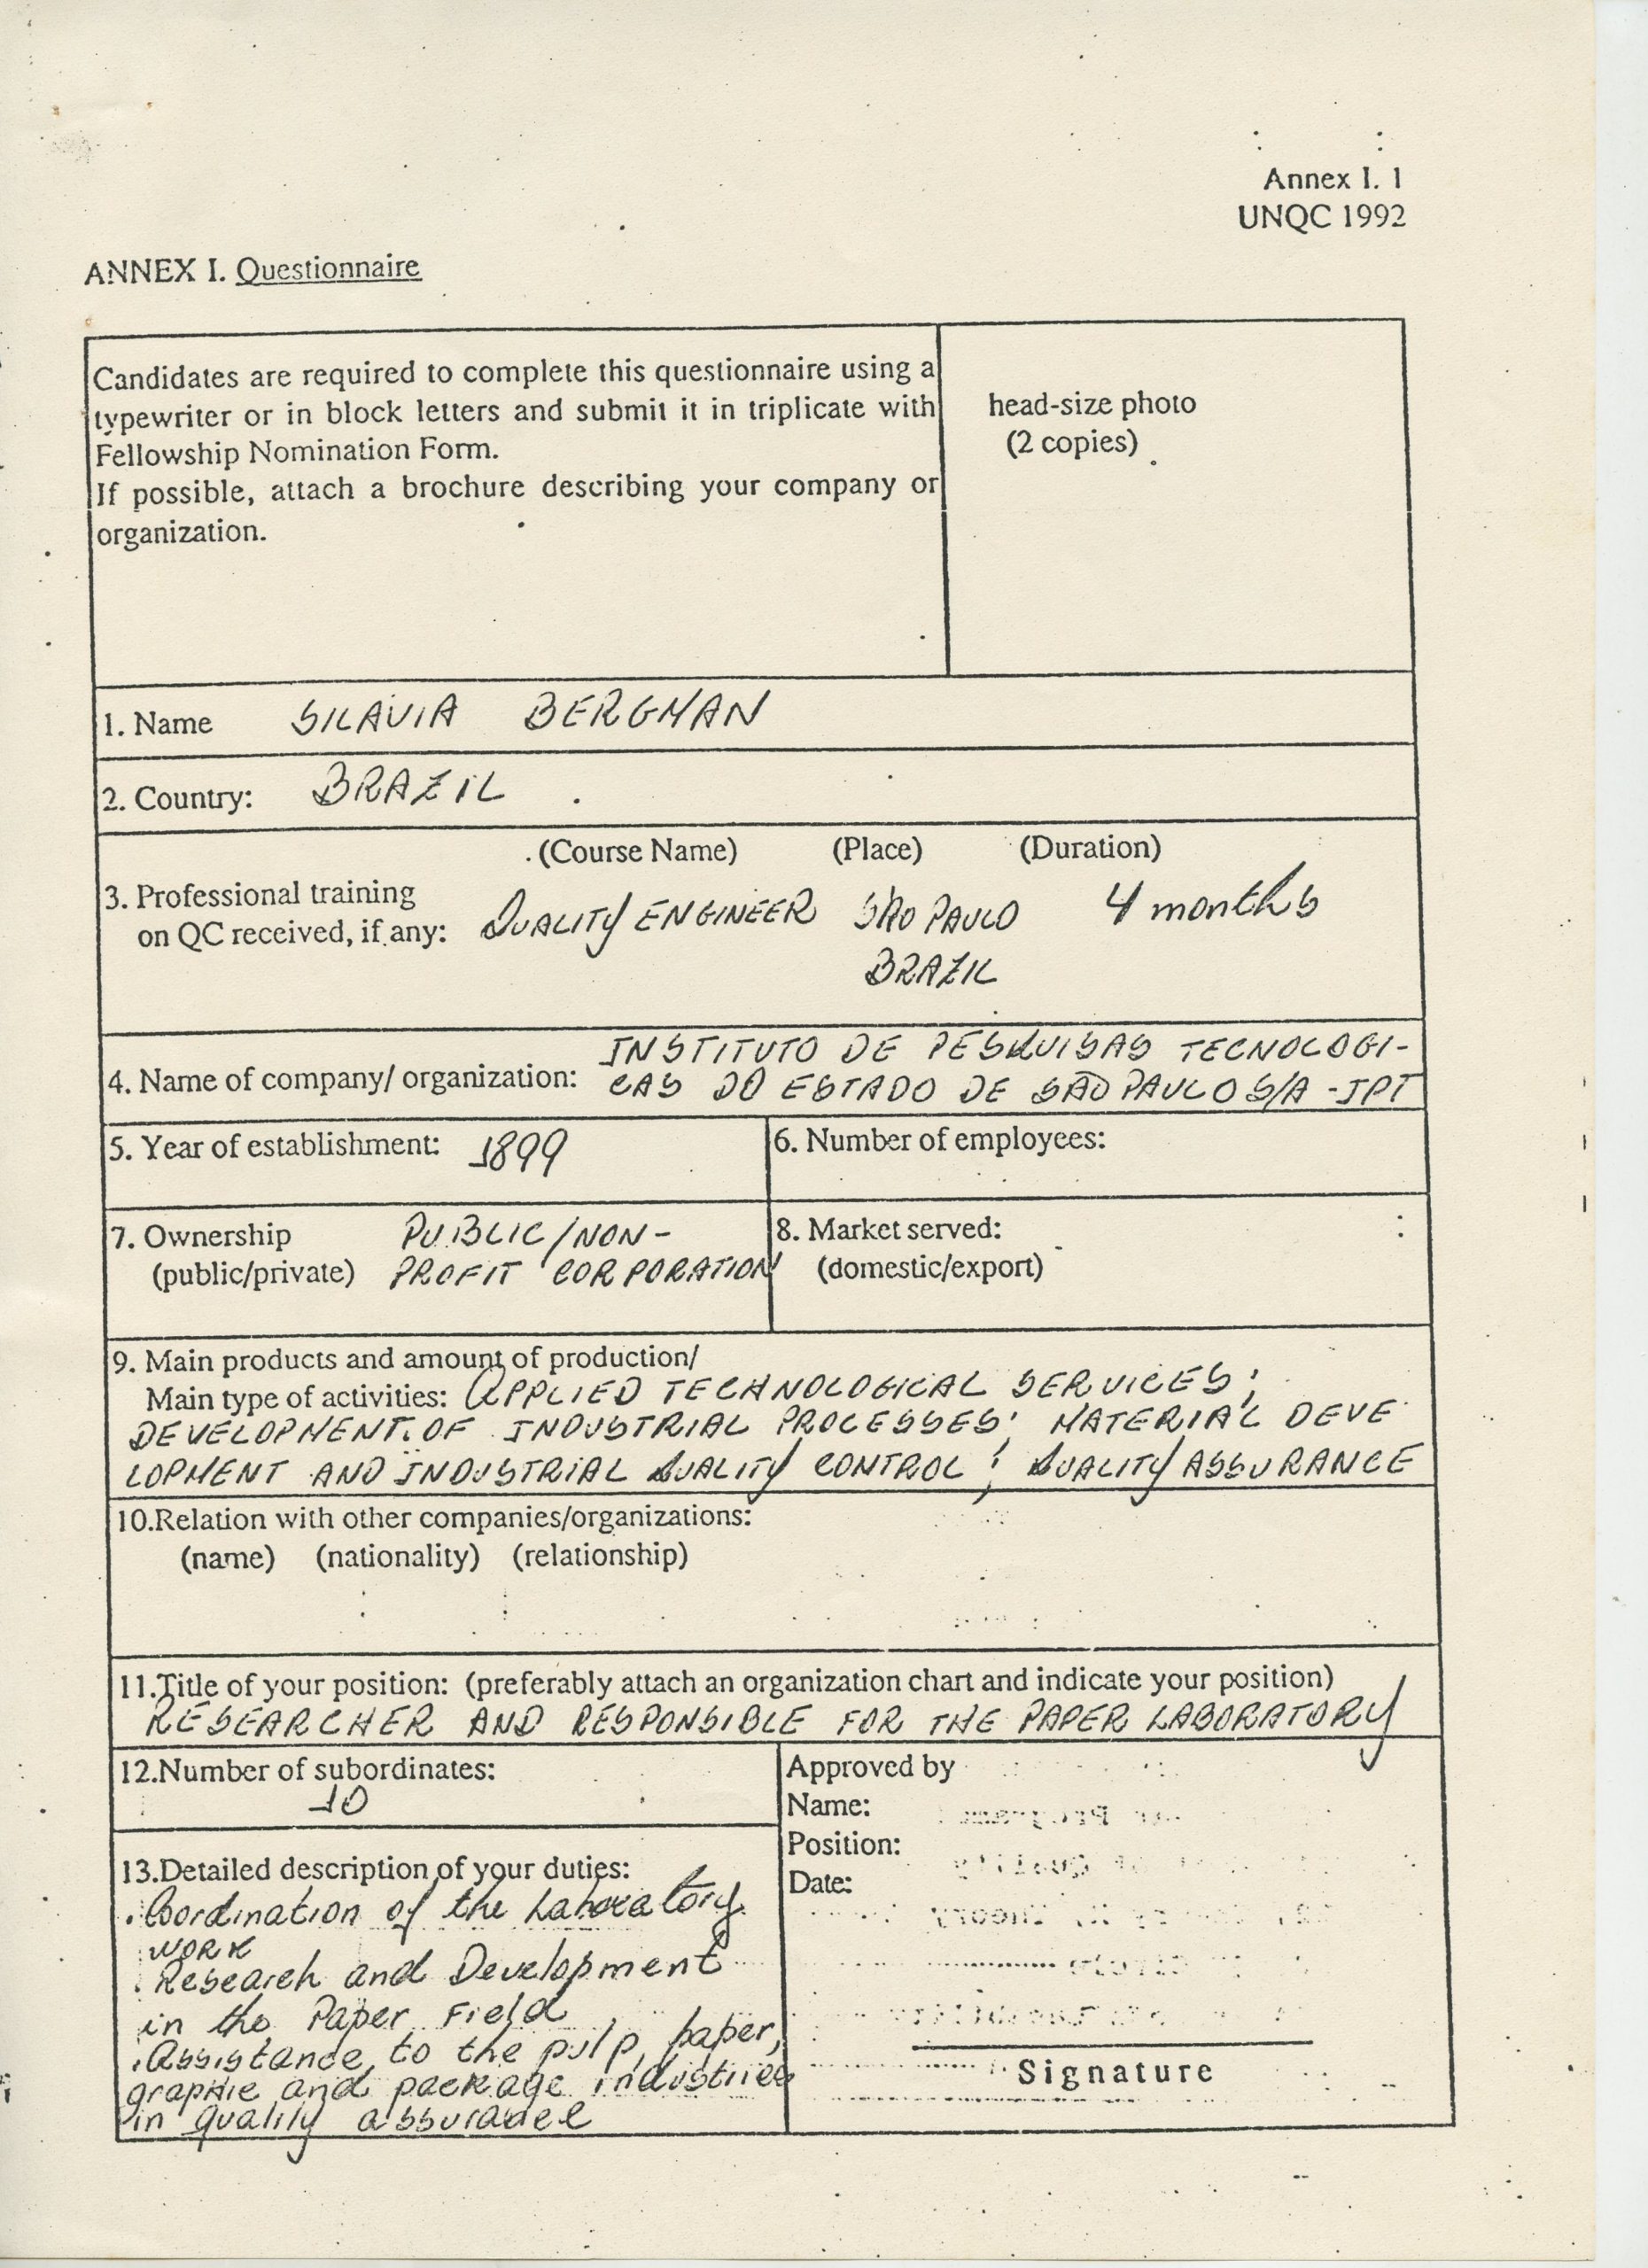 Annex I. 1
UNQC 1992
ANNEX I. Questionnaire
Candidates are required to complete this questionnaire using a
typewriter or in block letters and submit it in triplicate with
Fellowship Nomination Form.
If possible, attach a brochure describing your company or
organization.
head-size photo
(2 copies)
1. Name SILAVIA BERGMAN
2. Country: BRAZIL
(Course Name) (Place) (Duration)
3. Professional training
on QC received, if any: QUALITY ENGINEER SÃO PAULO 4 months
BRAZIL
INSTITUTO DE PESQUISAS TECNOLOGI-
4. Name of company/ organization: CAS DO ESTADO DE SÃO PAULO S/A -IPT
5. Year of establishment: 1899
6. Number of employees:
7. Ownership PUBLIC/NON-
(public/private) PROFIT CORPORATION
8. Market served:
(domestic/export)
9. Main products and amount of production/
Main type of activities: APPLIED TECHNOLOGICAL SERVICES;
DEVELOPMENT OF INDUSTRIAL PROCESSES; MATERIAL DEVE
LOPMENT AND INDUSTRIAL QUALITY CONTROL; QUALITY ASSURANCE
10.Relation with other companies/organizations:
(name) (nationality) (relationship)
11.Title of your position: (preferably attach an organization chart and indicate your position)
RESEARCHER AND RESPONSIBLE FOR THE PAPER LABORATORY
12.Number of subordinates:
10
13.Detailed description of your duties:
. Coordination of the Laboratory
WORK
. Research and Development
in the Paper Field
. Assistance to the pulp, paper,
graphic and package industries
in quality assurance
Approved by
Name:
Position:
Date:
Signature